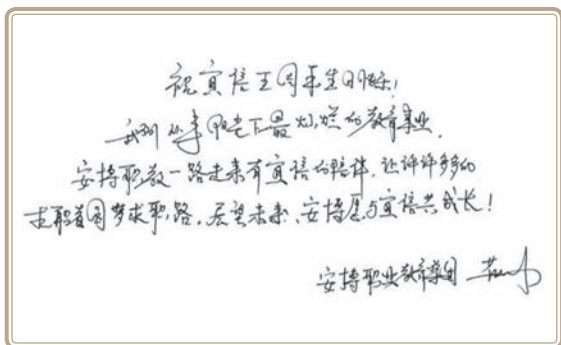 祝宾信五周年生日快乐!
我们从事阳光下最灿烂的教育事业,
安博职教一路走来有宾信的陪伴,让许许多多的
求职者圆梦求职路,展望未来,安博愿与宾信共成长!
安博职业教育集团